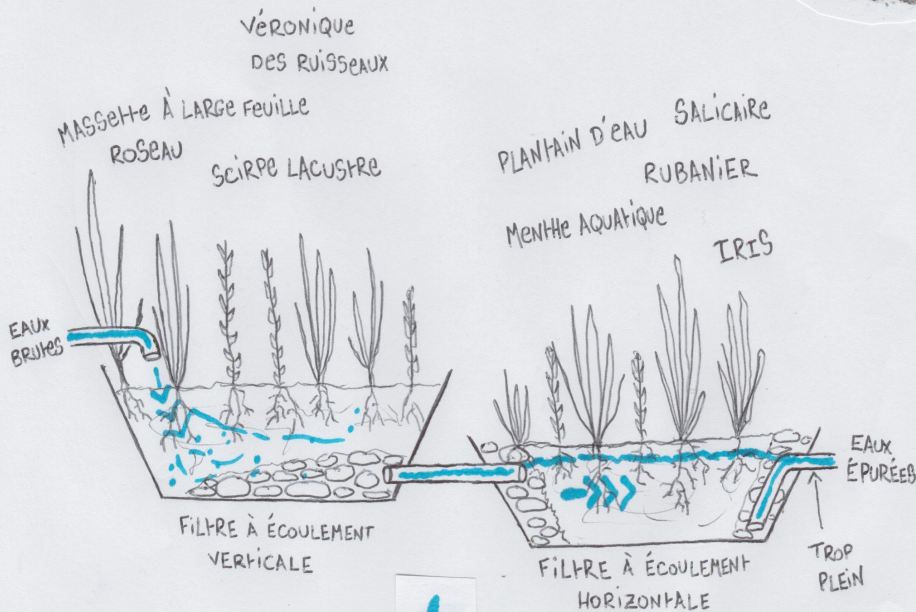 VÉRONIQUE
DES RUISSEAUX
MASSETTE À LARGE FEUILLE
ROSEAU
SCIRPE LACUSTRE
PLANTAIN D'EAU
SALICAIRE
RUBANIER
MENTHE AQUATIQUE
IRIS
EAUX
BRUTES
EAUX
ÉPURÉES
FILTRE À ÉCOULEMENT
VERTICALE
FILTRE À ÉCOULEMENT
HORIZONTALE
TROP
PLEIN